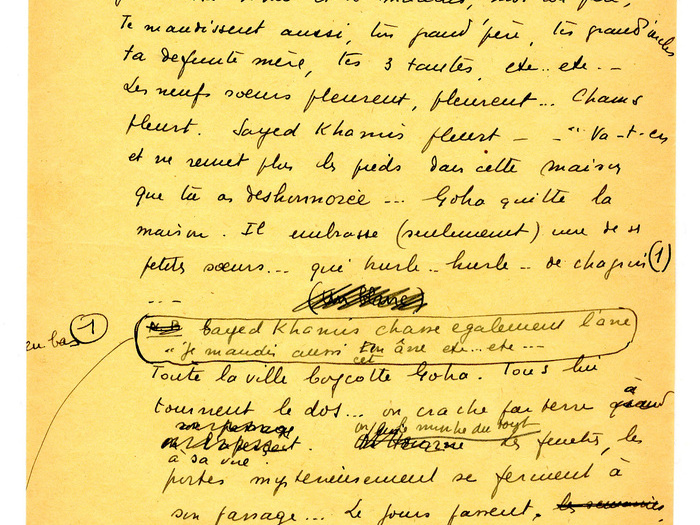 Te maudissent aussi, ton grand'père, tes grands oncles
ta defunte mère, tes 3 tantes, etc.. etc. --
Les neufs sœurs pleurent, pleurent... Chams
pleurt. Sayed Khamis pleurt - - "Va-t-en
et ne remet plus les pieds dans cette maison
que tu as deshonnorée ... Goha quitte la
maison. Il embrasse (seulement) une de s
petites sœurs... qui hurle.. hurle.. de chagrin (1)
....
N.B Sayed Khamis chasse egalement l'ane
en bas 1
"je maudis aussi cet âne etc...etc ---
Toute la ville boycotte Goha. Tous lui
tournent le dos... on crache par terre à
à sa vue. les fenetres, les
portes mysterieusement se ferment à
son passage... Le jours passent.